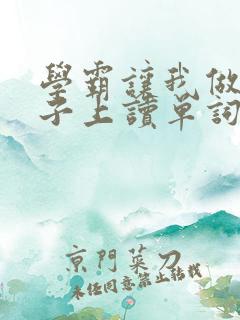 學霸讓我做
子上讀單詞
京門菜刀
未經同意禁止轉載